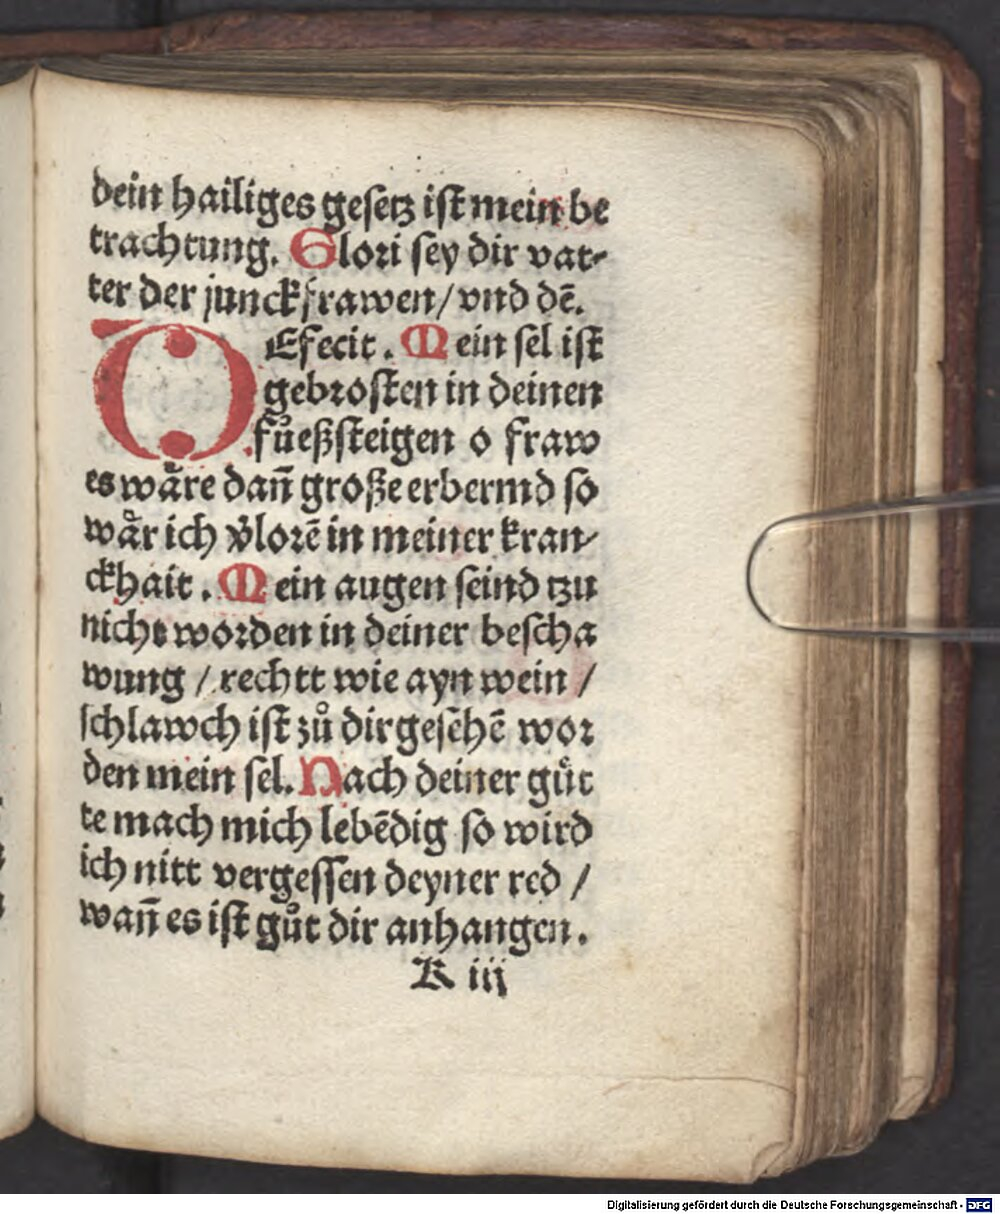 dein hailiges gesetz ist mein be
trachtung. Glori sey dir vat-
ter der junckfrawen/ vnd dē.
DEfecit. Mein sel ist
gebrosten in deinen
fůeßsteigen o fraw
es wåre dañ große erbermd so
wår ich v̊lorē in meiner kran-
ckhait. Mein augen seind tzu
nicht worden in deiner bescha
wung / rechtt wie ayn wein /
schlawch ist zů dir gesehē wor
den mein sel. Nach deiner gůt
te mach mich lebēdig so wird
ich nitt vergessen deyner red /
wañ es ist gůt dir anhangen.
K iij
Digitalisierung gefördert durch die Deutsche Forschungsgemeinschaft - DFG